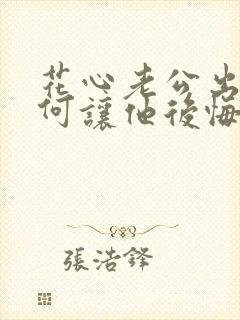 花心老公出
何讓他後悔
張浩鋒